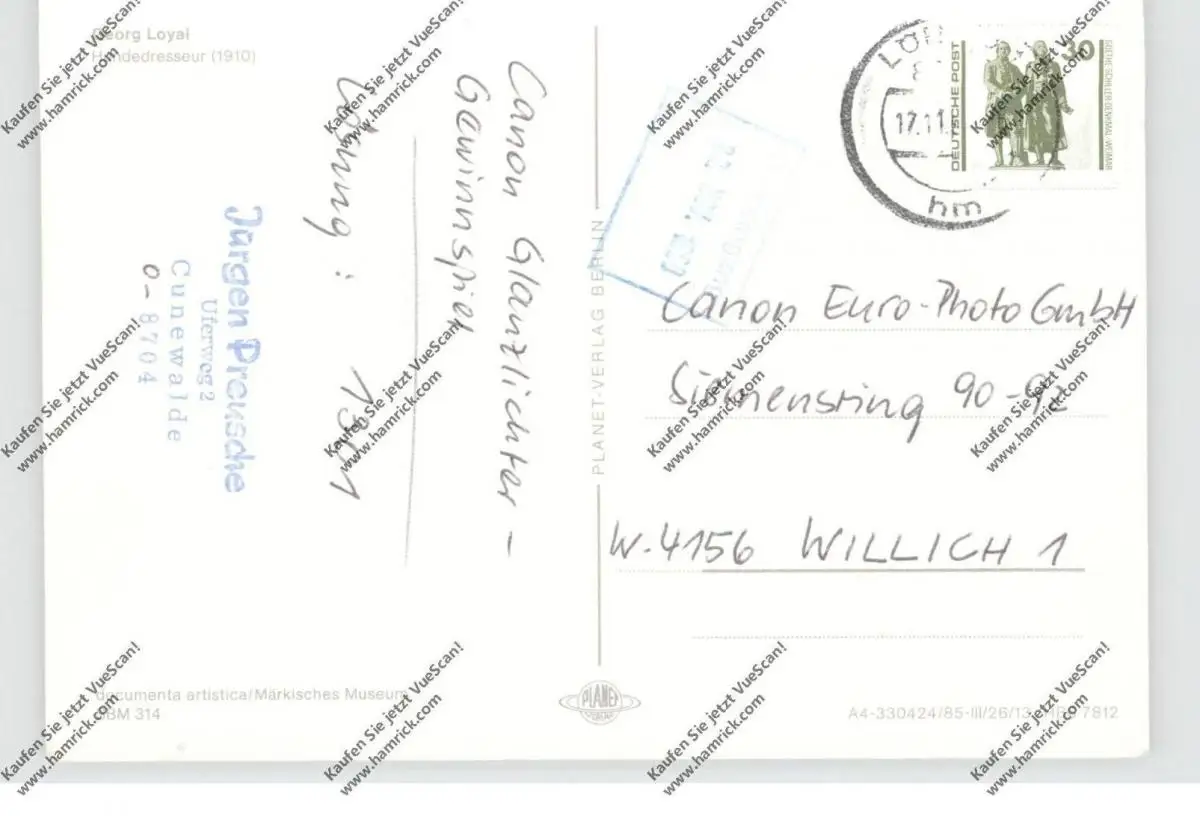 Georg Loyal
Hundedresseur (1910)
Canon Glanzlichter -
Gewinnspiel
Lösung :
Jürgen Preusche
Uferweg 2
Cunewalde
O-8704
PLANET-VERLAG BERLIN
17.11
hm
DEUTSCHE POST
30
GOETHE-SCHILLER-DENKMAL · WEIMAR
Canon Euro-Photo GmbH
Siemensring 90-92
W-4156 WILLICH 1
documenta artistica/Märkisches Museum
BBM 314
PLANET
VERLAG
A4-330424/85-III/26/13
7812
Kaufen Sie jetzt VueScan!
www.hamrick.com